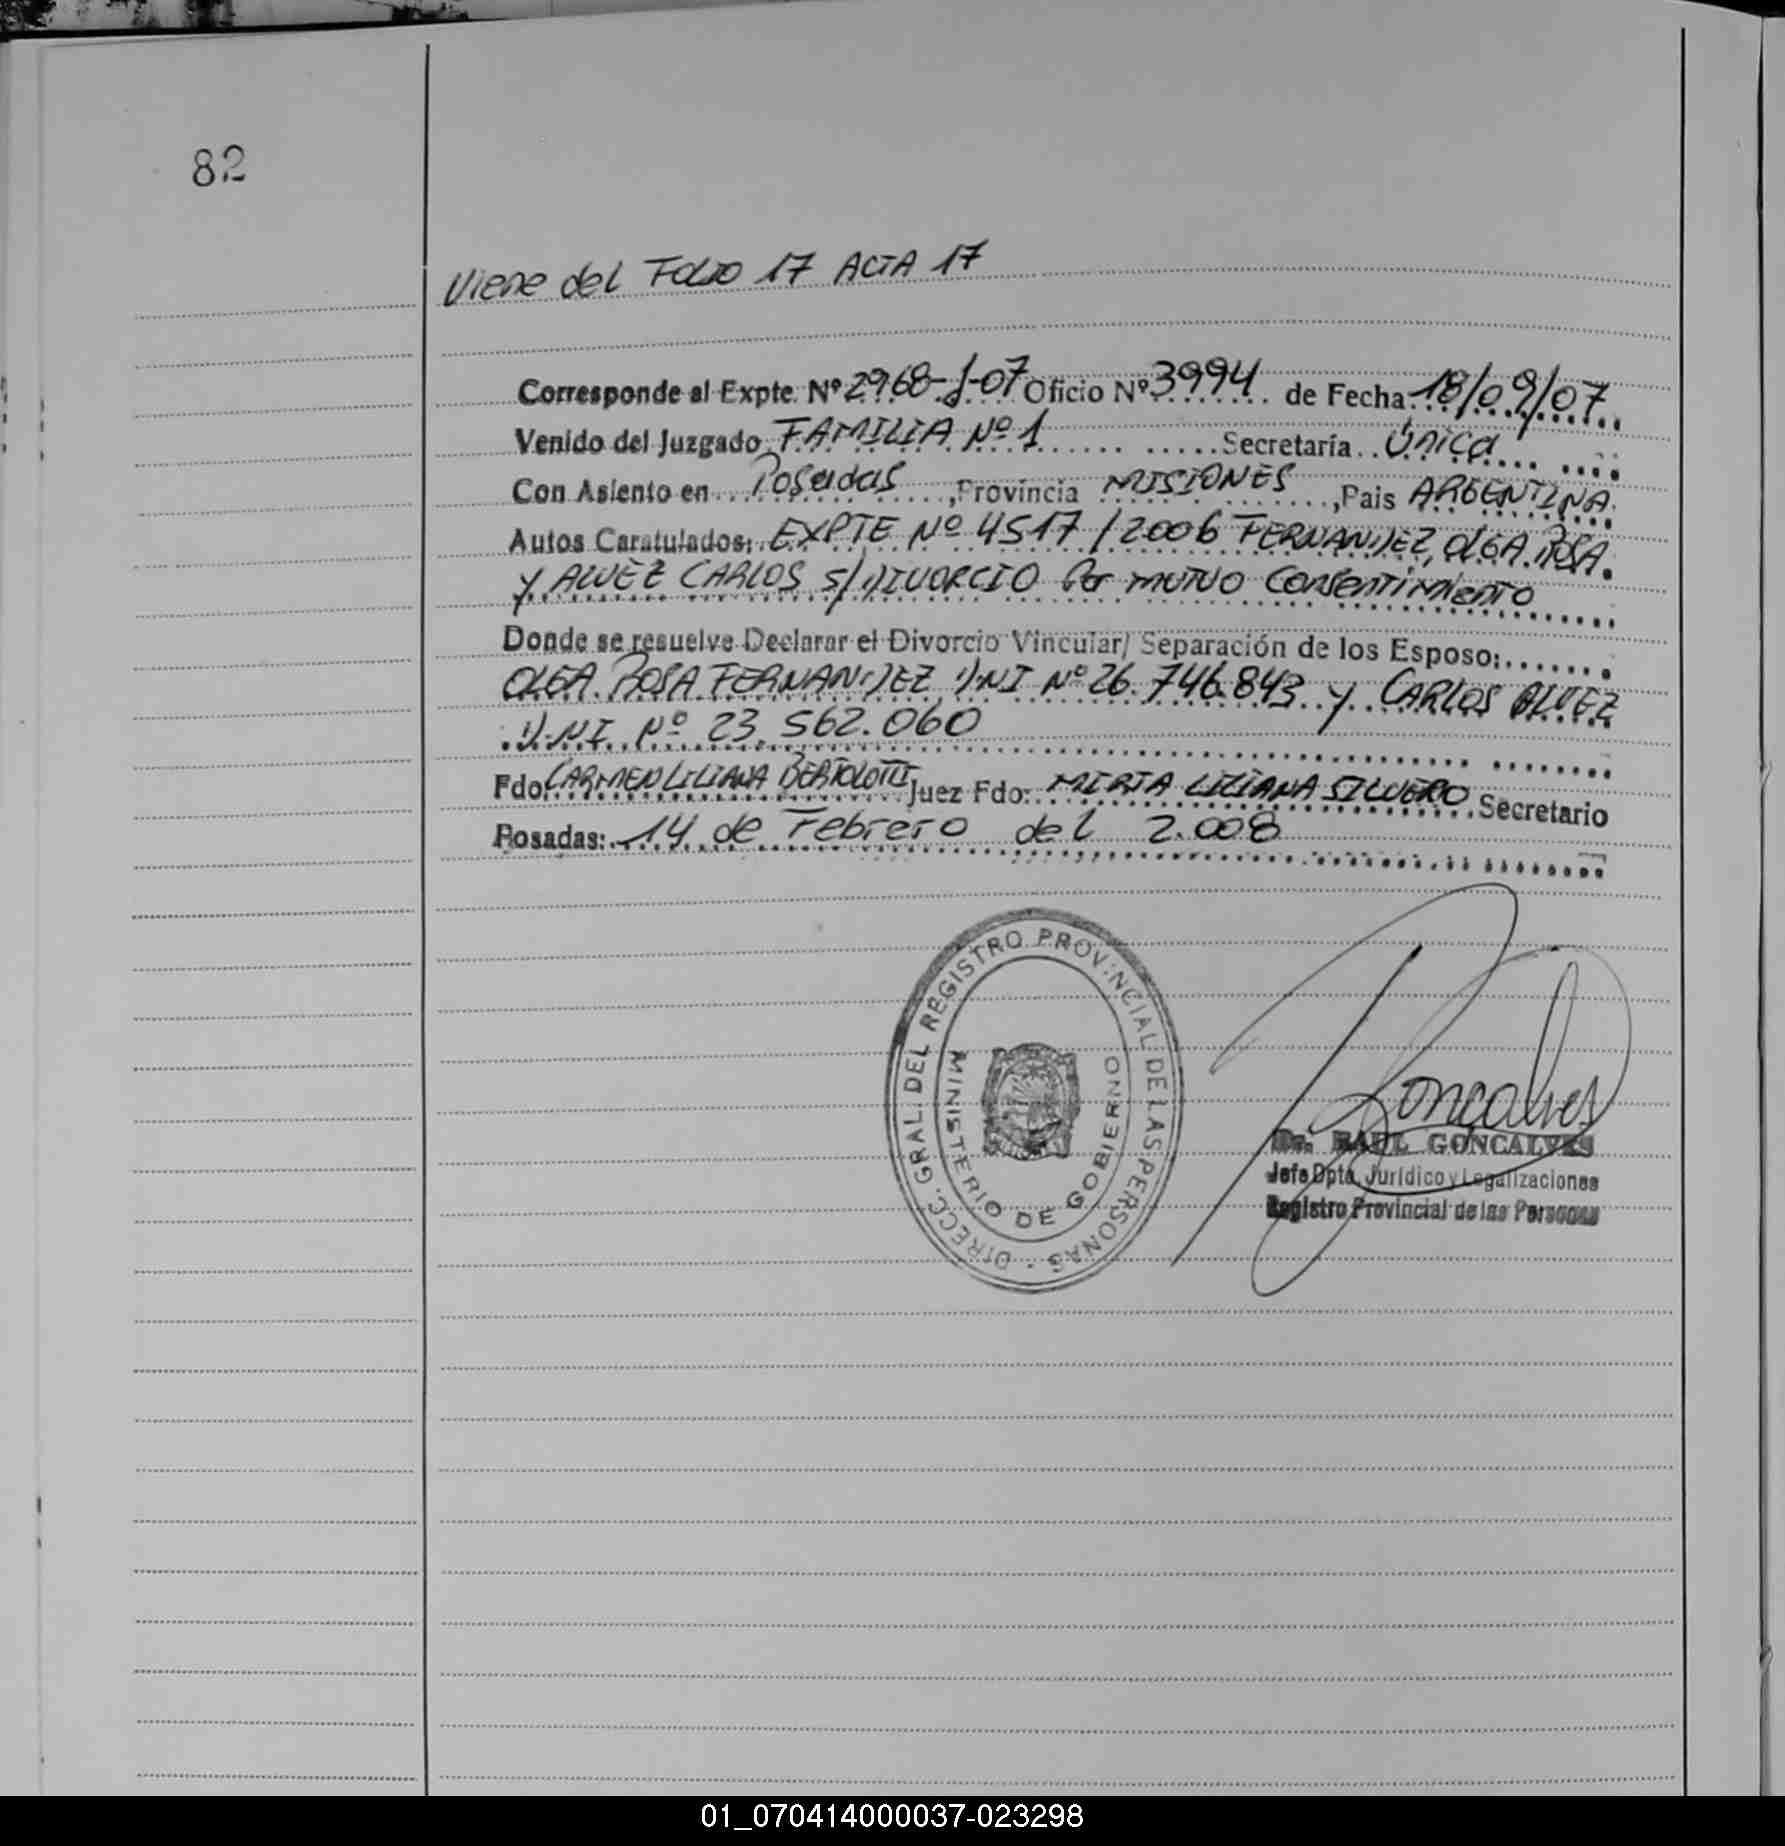 82
Viene del Folio 17 ACTA 17
Corresponde al Expte. Nº 2968-J-07 Oficio Nº 3994 de Fecha 18/09/07
Venido del Juzgado FAMILIA Nº 1 Secretaría Única
Con Asiento en Posadas, Provincia MISIONES, Pais ARGENTINA
Autos Caratulados: EXPTE Nº 4517/2006 FERNANDEZ, OLGA ROSA
y ALVEZ CARLOS s/ DIVORCIO Por MUTUO Consentimiento
Donde se resuelve Declarar el Divorcio Vincular/ Separación de los Esposo:
OLGA ROSA FERNANDEZ DNI Nº 26.746.843 y CARLOS ALVEZ
DNI Nº 23.562.060
Fdo: CARMEN LILIANA BERTOLOTTI Juez Fdo: MIRTA LILIANA SILVERO Secretario
Posadas: 14 de Febrero del 2.008
DIRECC. GRAL. DEL REGISTRO PROVINCIAL DE LAS PERSONAS
MINISTERIO DE GOBIERNO
Goncalves
Dr. RAUL GONCALVES
Jefe Dpto. Jurídico y Legalizaciones
Registro Provincial de las Personas
01_070414000037-023298